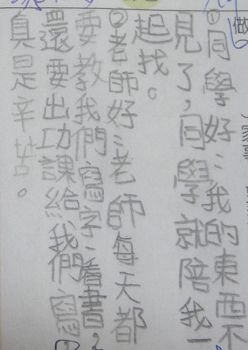 ①同學好:我的東西不
見了,同學就陪我一
起找。
②老師好:老師每天都
要教我們寫字:看書,
還要出功課給我們寫
真是辛苦。